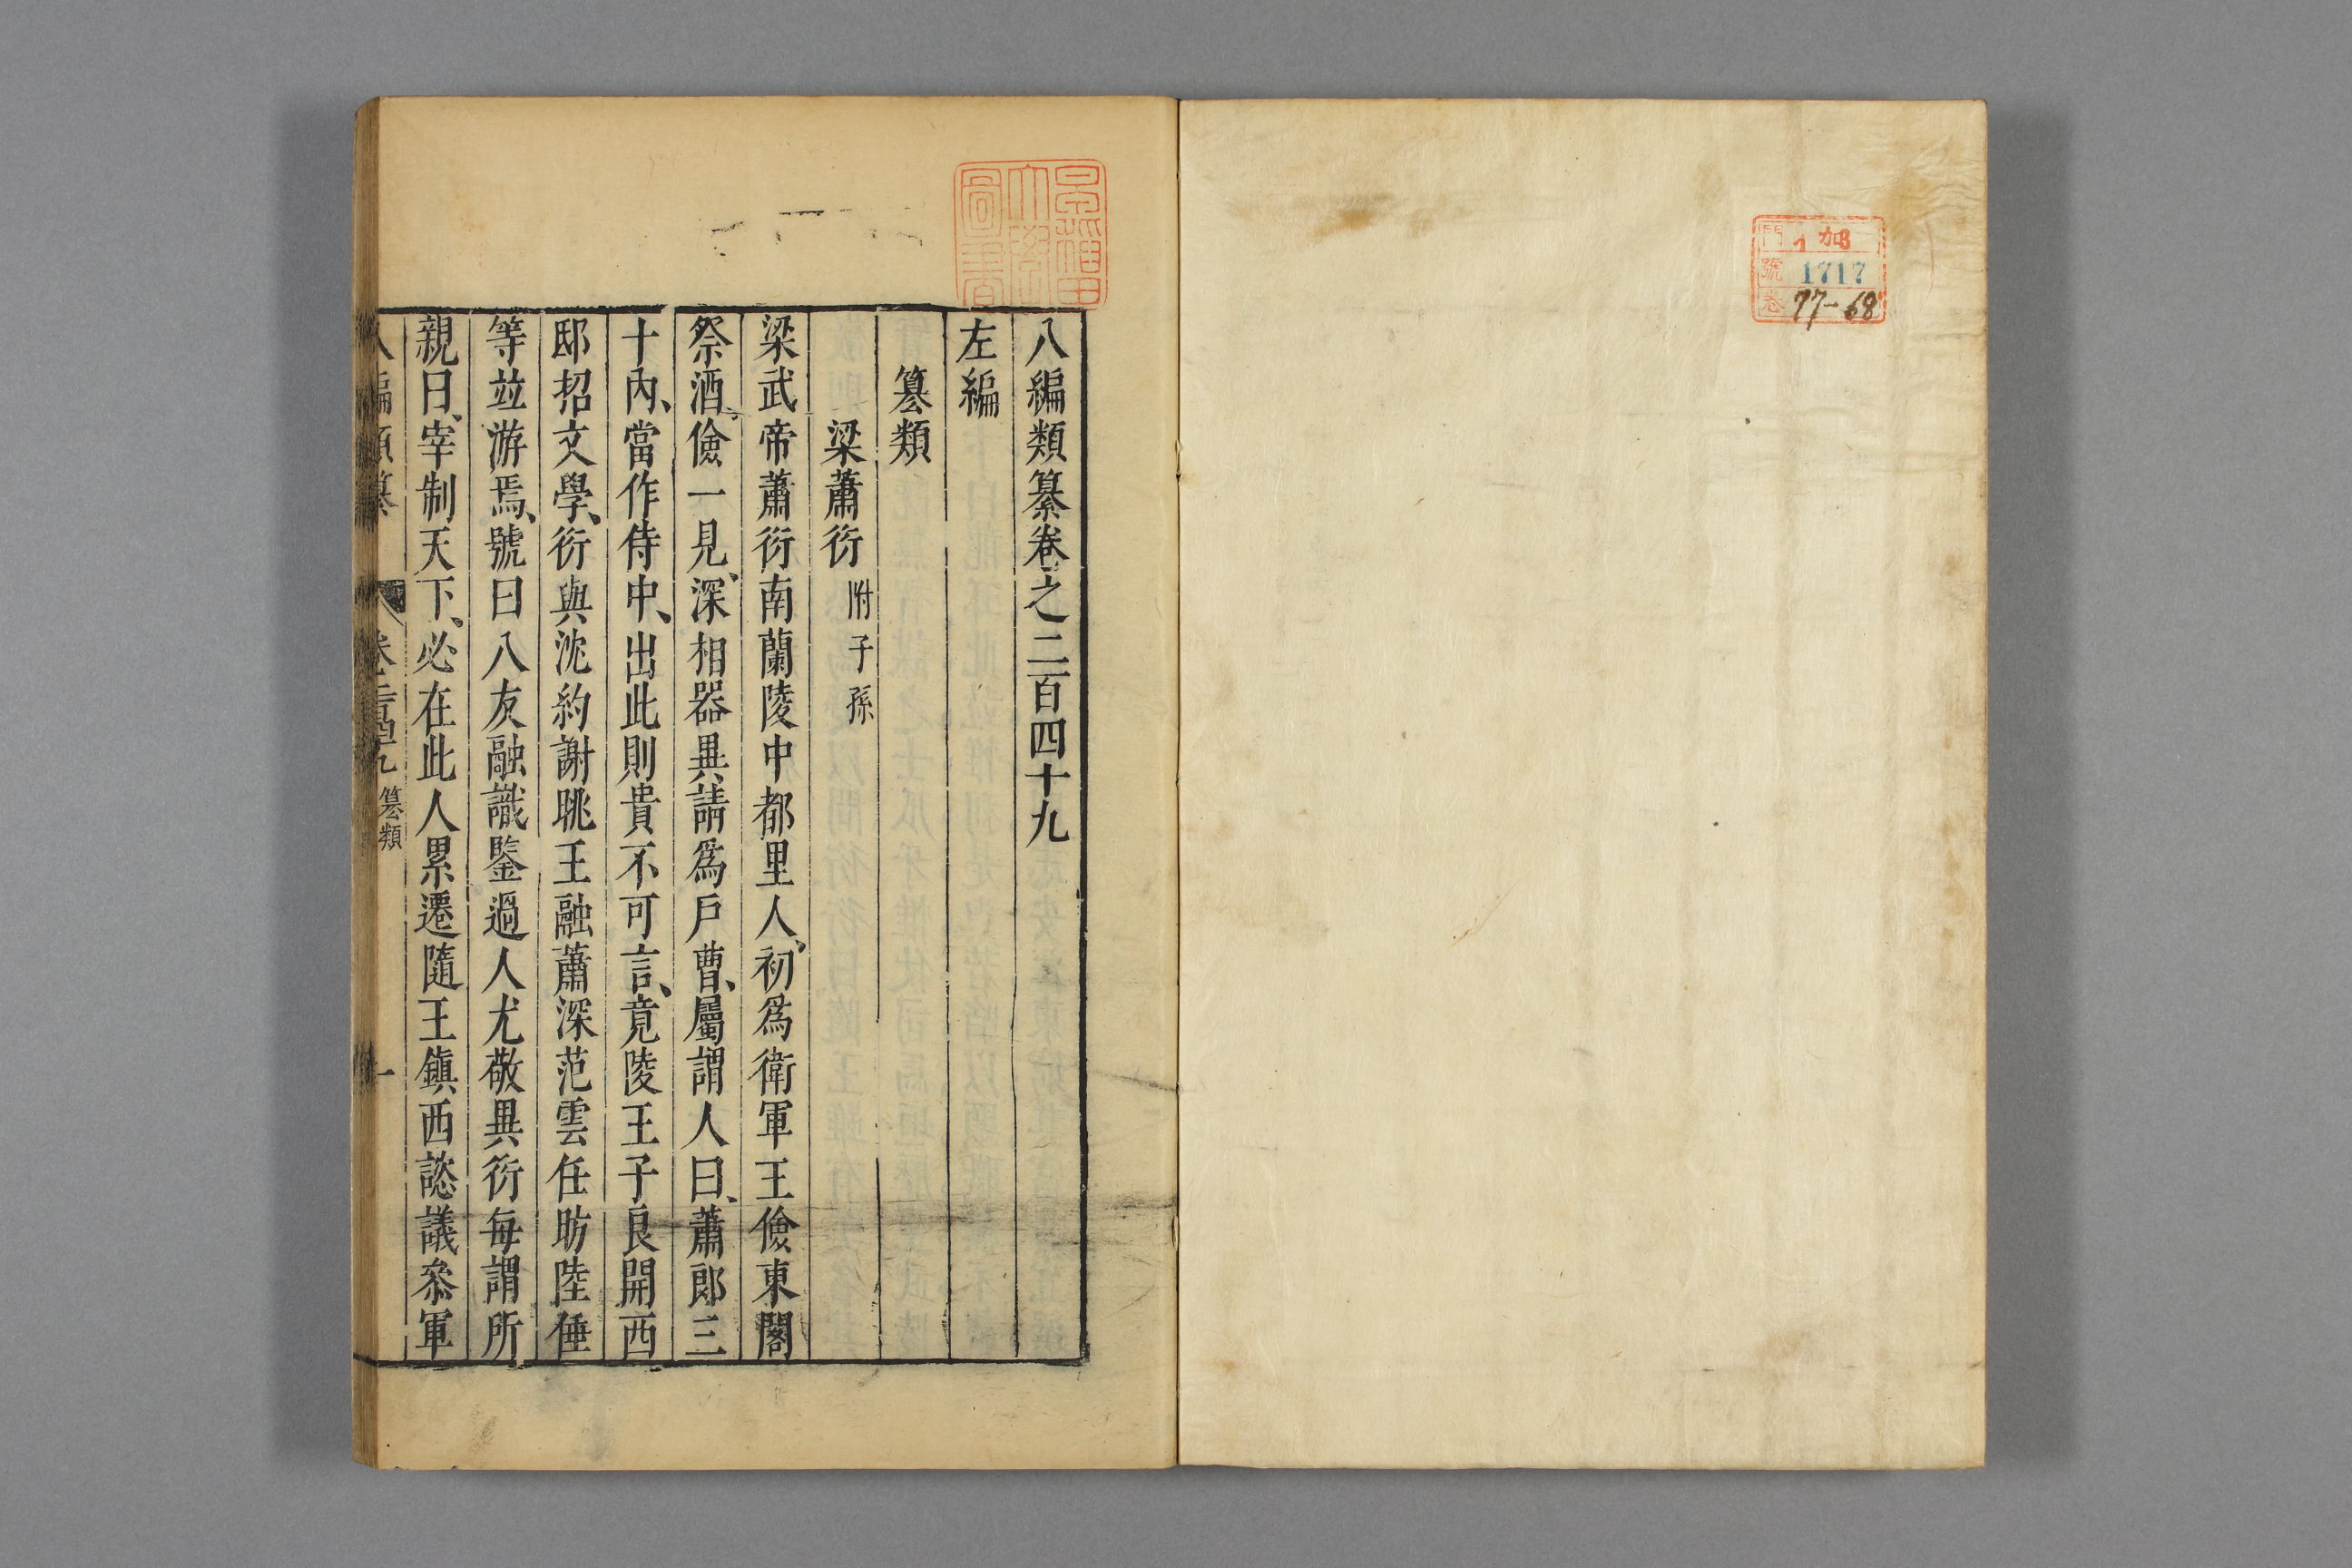 門 加 13
號 1717
卷 77-68
八編類纂卷之二百四十九
左編
篡類
梁蕭衍 附子孫
梁武帝蕭衍南蘭陵中都里人、初爲衛軍王儉東閣
祭酒、儉一見、深相器異、請爲戶曹、屬謂人曰、蕭郎三
十內、當作侍中、出此則貴不可言、竟陵王子良開西
邸招文學、衍與沈約謝朓王融蕭深范雲任昉陸倕
等竝游焉、號曰八友融識鑒過人尤敬異衍每謂所
親曰、宰制天下、必在此人累遷隨王鎮西諮議叅軍
八編類纂 卷二百四十九 篡類 一